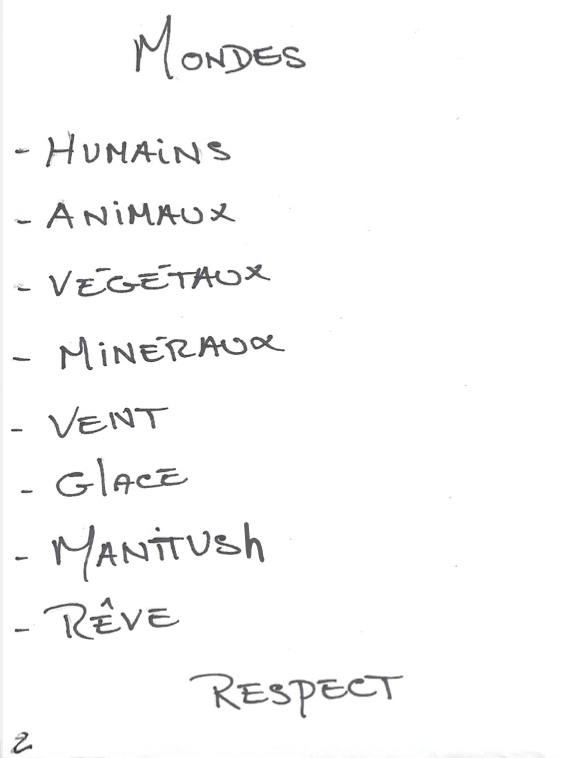 MONDES
- HUMAiNS
- ANiMAUX
- VÉGÉTAUX
- MiNÉRAUX
- VENT
- GlACE
- MANiTUSh
- RÊVE
RESPECT
2